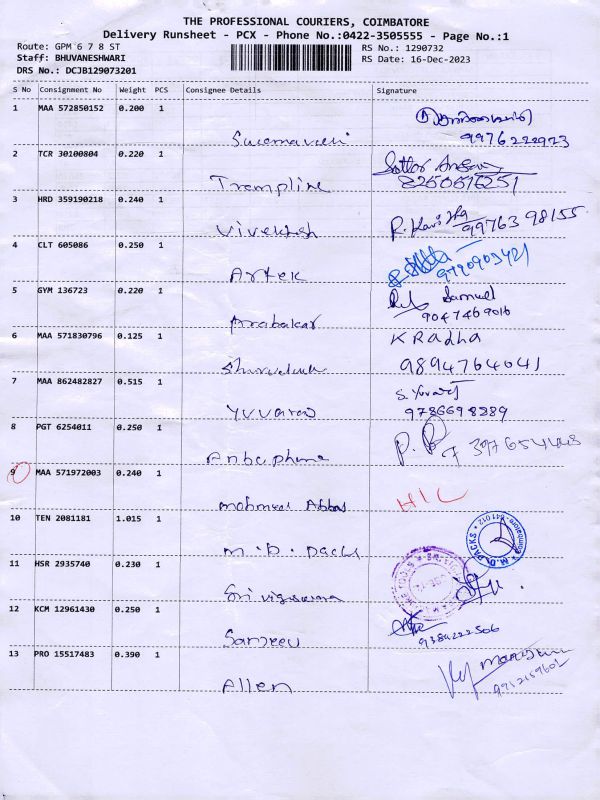 THE PROFESSIONAL COURIERS, COIMBATORE
Delivery Runsheet - PCX - Phone No.:0422-3505555 - Page No.:1
Route: GPM 6 7 8 ST
RS No.: 1290732
Staff: BHUVANESHWARI
RS Date: 16-Dec-2023
DRS No.: DCJB129073201
S No Consignment No Weight PCS Consignee Details Signature
1 MAA 572850152 0.200 1
9976222923
2 TCR 30100804 0.220 1
Trempline 8250616251
3 HRD 359190218 0.240 1
99763 98155
4 CLT 605086 0.250 1
Artek 9790903421
5 GYM 136723 0.220 1 Samuel
Arabakar 9047469016
6 MAA 571830796 0.125 1 K Radha
9894764041
7 MAA 862482827 0.515 1 S. Yuvaraj
Yuvaraj 9786698889
8 PGT 6254011 0.250 1
Anbu phone
9 MAA 571972003 0.240 1
Abbas H/C
10 TEN 2081181 1.015 1
M.D. Packs M.D. PACKS
11 HSR 2935740 0.230 1
Sri vigneswara
12 KCM 12961430 0.250 1
Sanjeev 9384222506
13 PRO 15517483 0.390 1
Allen 9952159601